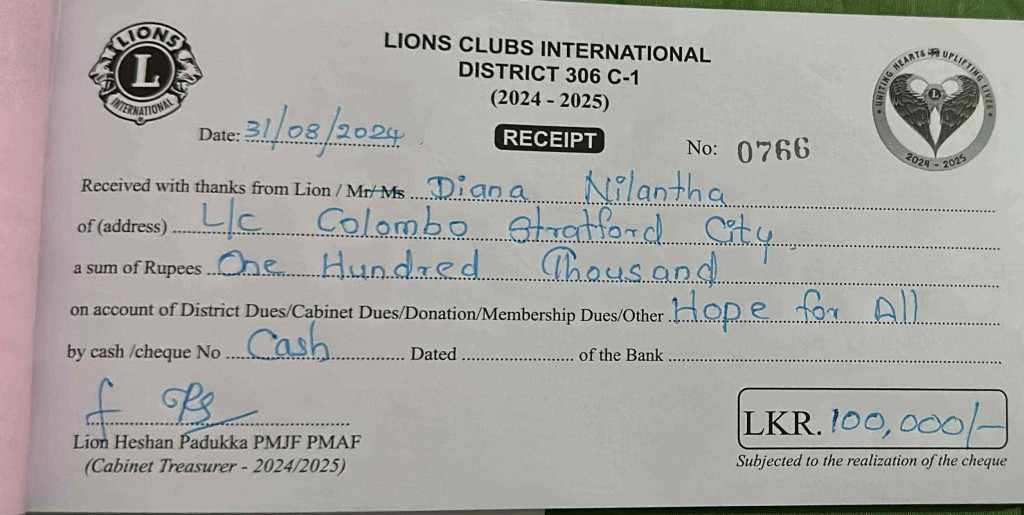 LIONS
L
INTERNATIONAL
LIONS CLUBS INTERNATIONAL
DISTRICT 306 C-1
(2024 - 2025)
UNITING HEARTS UPLIFTING LIVES
L
2024 - 2025
Date: 31/08/2024
RECEIPT
No: 0766
Received with thanks from Lion / Mr/Ms Diana Nilantha
of (address) L/c Colombo Stratford City
a sum of Rupees One Hundred Thousand
on account of District Dues/Cabinet Dues/Donation/Membership Dues/Other Hope for All
by cash /cheque No Cash Dated of the Bank
Lion Heshan Padukka PMJF PMAF
(Cabinet Treasurer - 2024/2025)
LKR. 100,000/-
Subjected to the realization of the cheque